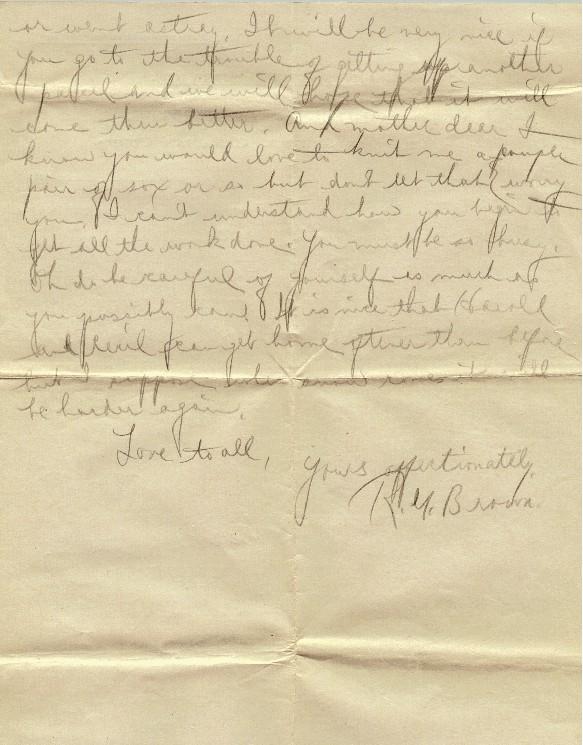 or went astray. It will be very nice if
you go to the trouble of getting up another
parcel and we will hope that it will
come thru better. And mother dear I
know you would love to knit me a couple
pair of sox or so but don't let that worry
you. I can't understand how you begin to
get all the work done. You must be so busy.
Oh do be careful of yourself as much as
you possibly can. It is nice that Harold
and Cecil can get home oftener than before
but I suppose when snow comes it will
be harder again.
Love to all,
yours affectionately,
R. Y. Brown.